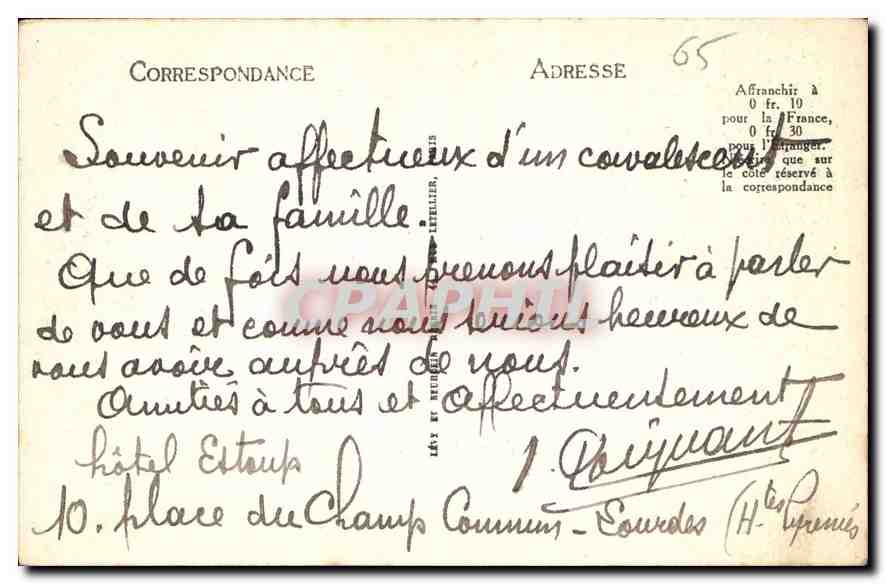 65
CORRESPONDANCE
ADRESSE
Affranchir à
0 fr. 10
pour la France,
0 fr. 30
pour l'Etranger.
N'écrire que sur
le côté réservé à
la correspondance
Souvenir affectueux d'un convalescent
et de sa famille.
Que de fois nous prenons plaisir à parler
de vous et comme nous serions heureux de
vous avoir auprès de nous.
Amitiés à tous et affectueusement
hôtel Estoup
J.
10. place du Champ Commun - Lourdes (Htes Pyrenées
LÉVY ET NEURDEIN RÉUNIS 44, RUE LETELLIER, PARIS
CPAPHIL